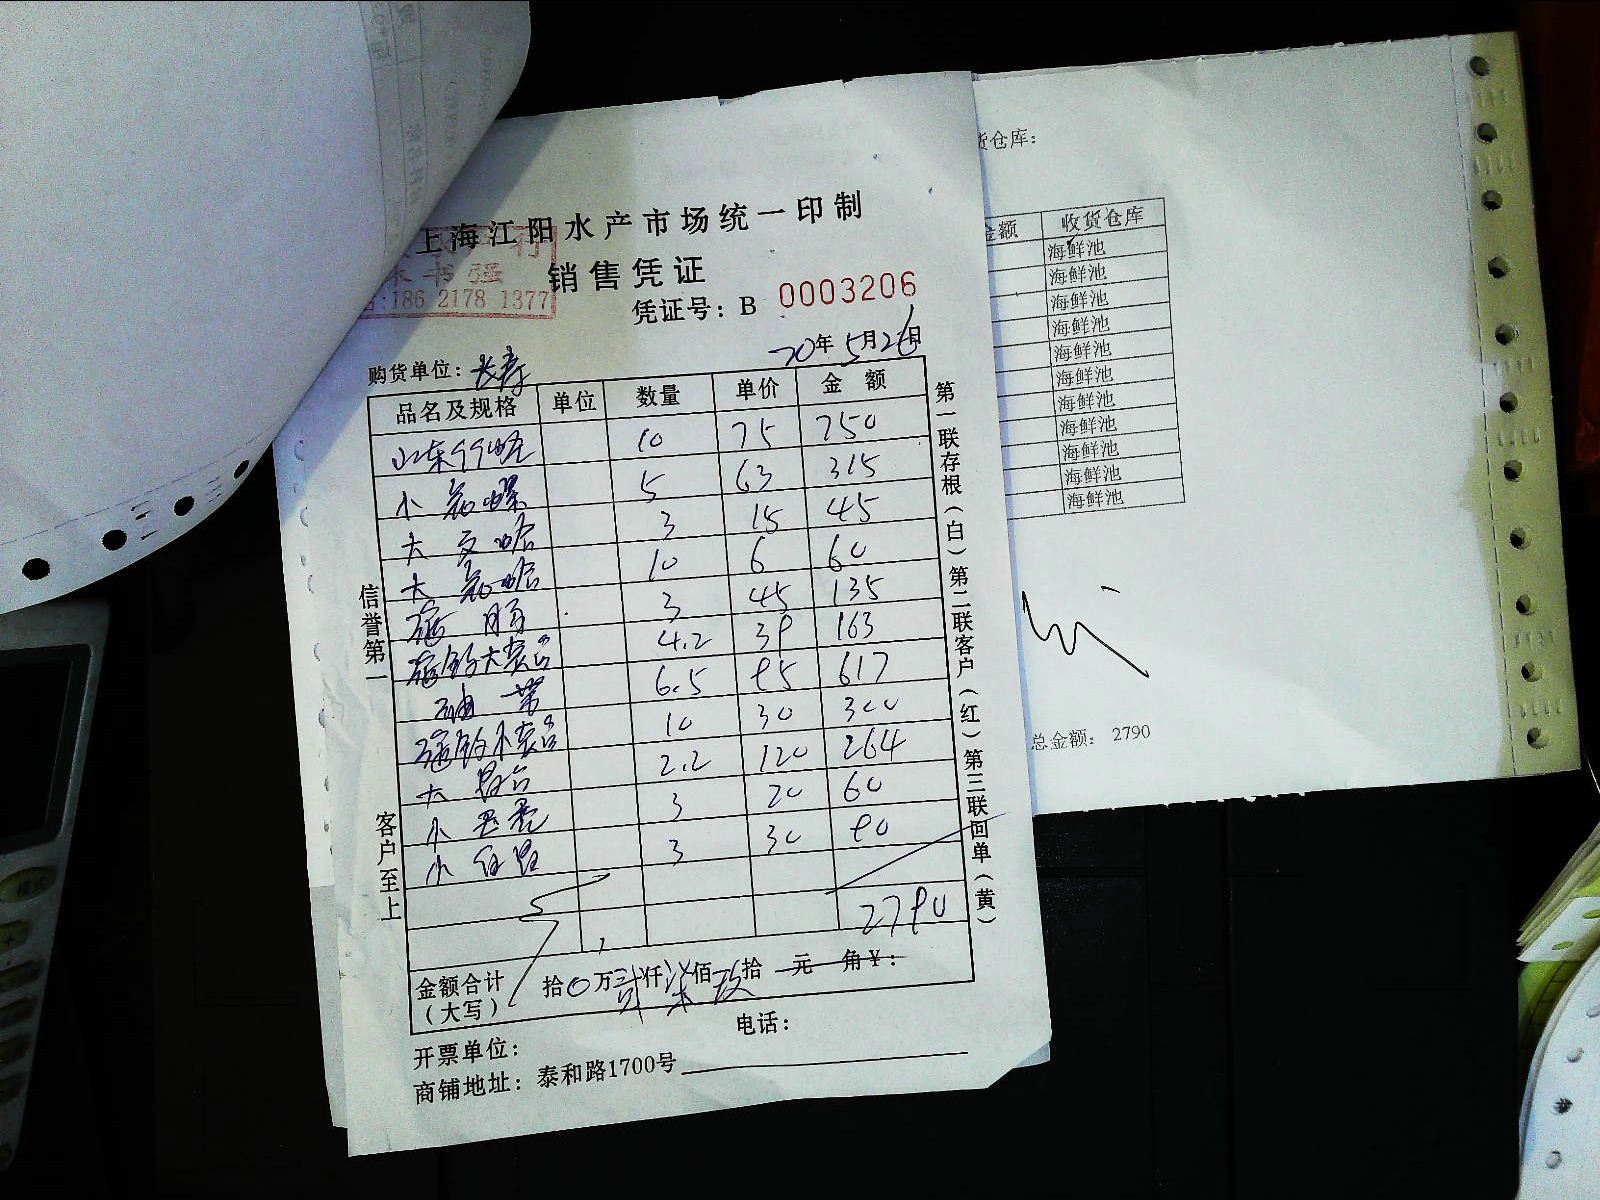 上海江阳水产市场统一印制
销售凭证
186 2178 1377
凭证号：B 0003206
20年5月26日
购货单位：长寿
品名及规格 单位 数量 单价 金额
10 75 750
小 螺 5 63 315
大 文哈 3 15 45
大 哈 10 6 60
肠 3 45 135
大 4.2 39 163
油 带 6.5 95 617
小 10 30 300
大 2.2 120 264
小 3 20 60
小 3 30 90
2790
金额合计（大写） 拾0万贰仟柒佰玖拾元角¥：
电话：
开票单位：
商铺地址：泰和路1700号
信誉第一
客户至上
第一联存根（白）第二联客户（红）第三联回单（黄）
货仓库：
金额 收货仓库
海鲜池
海鲜池
海鲜池
海鲜池
海鲜池
海鲜池
海鲜池
海鲜池
海鲜池
海鲜池
海鲜池
总金额： 2790